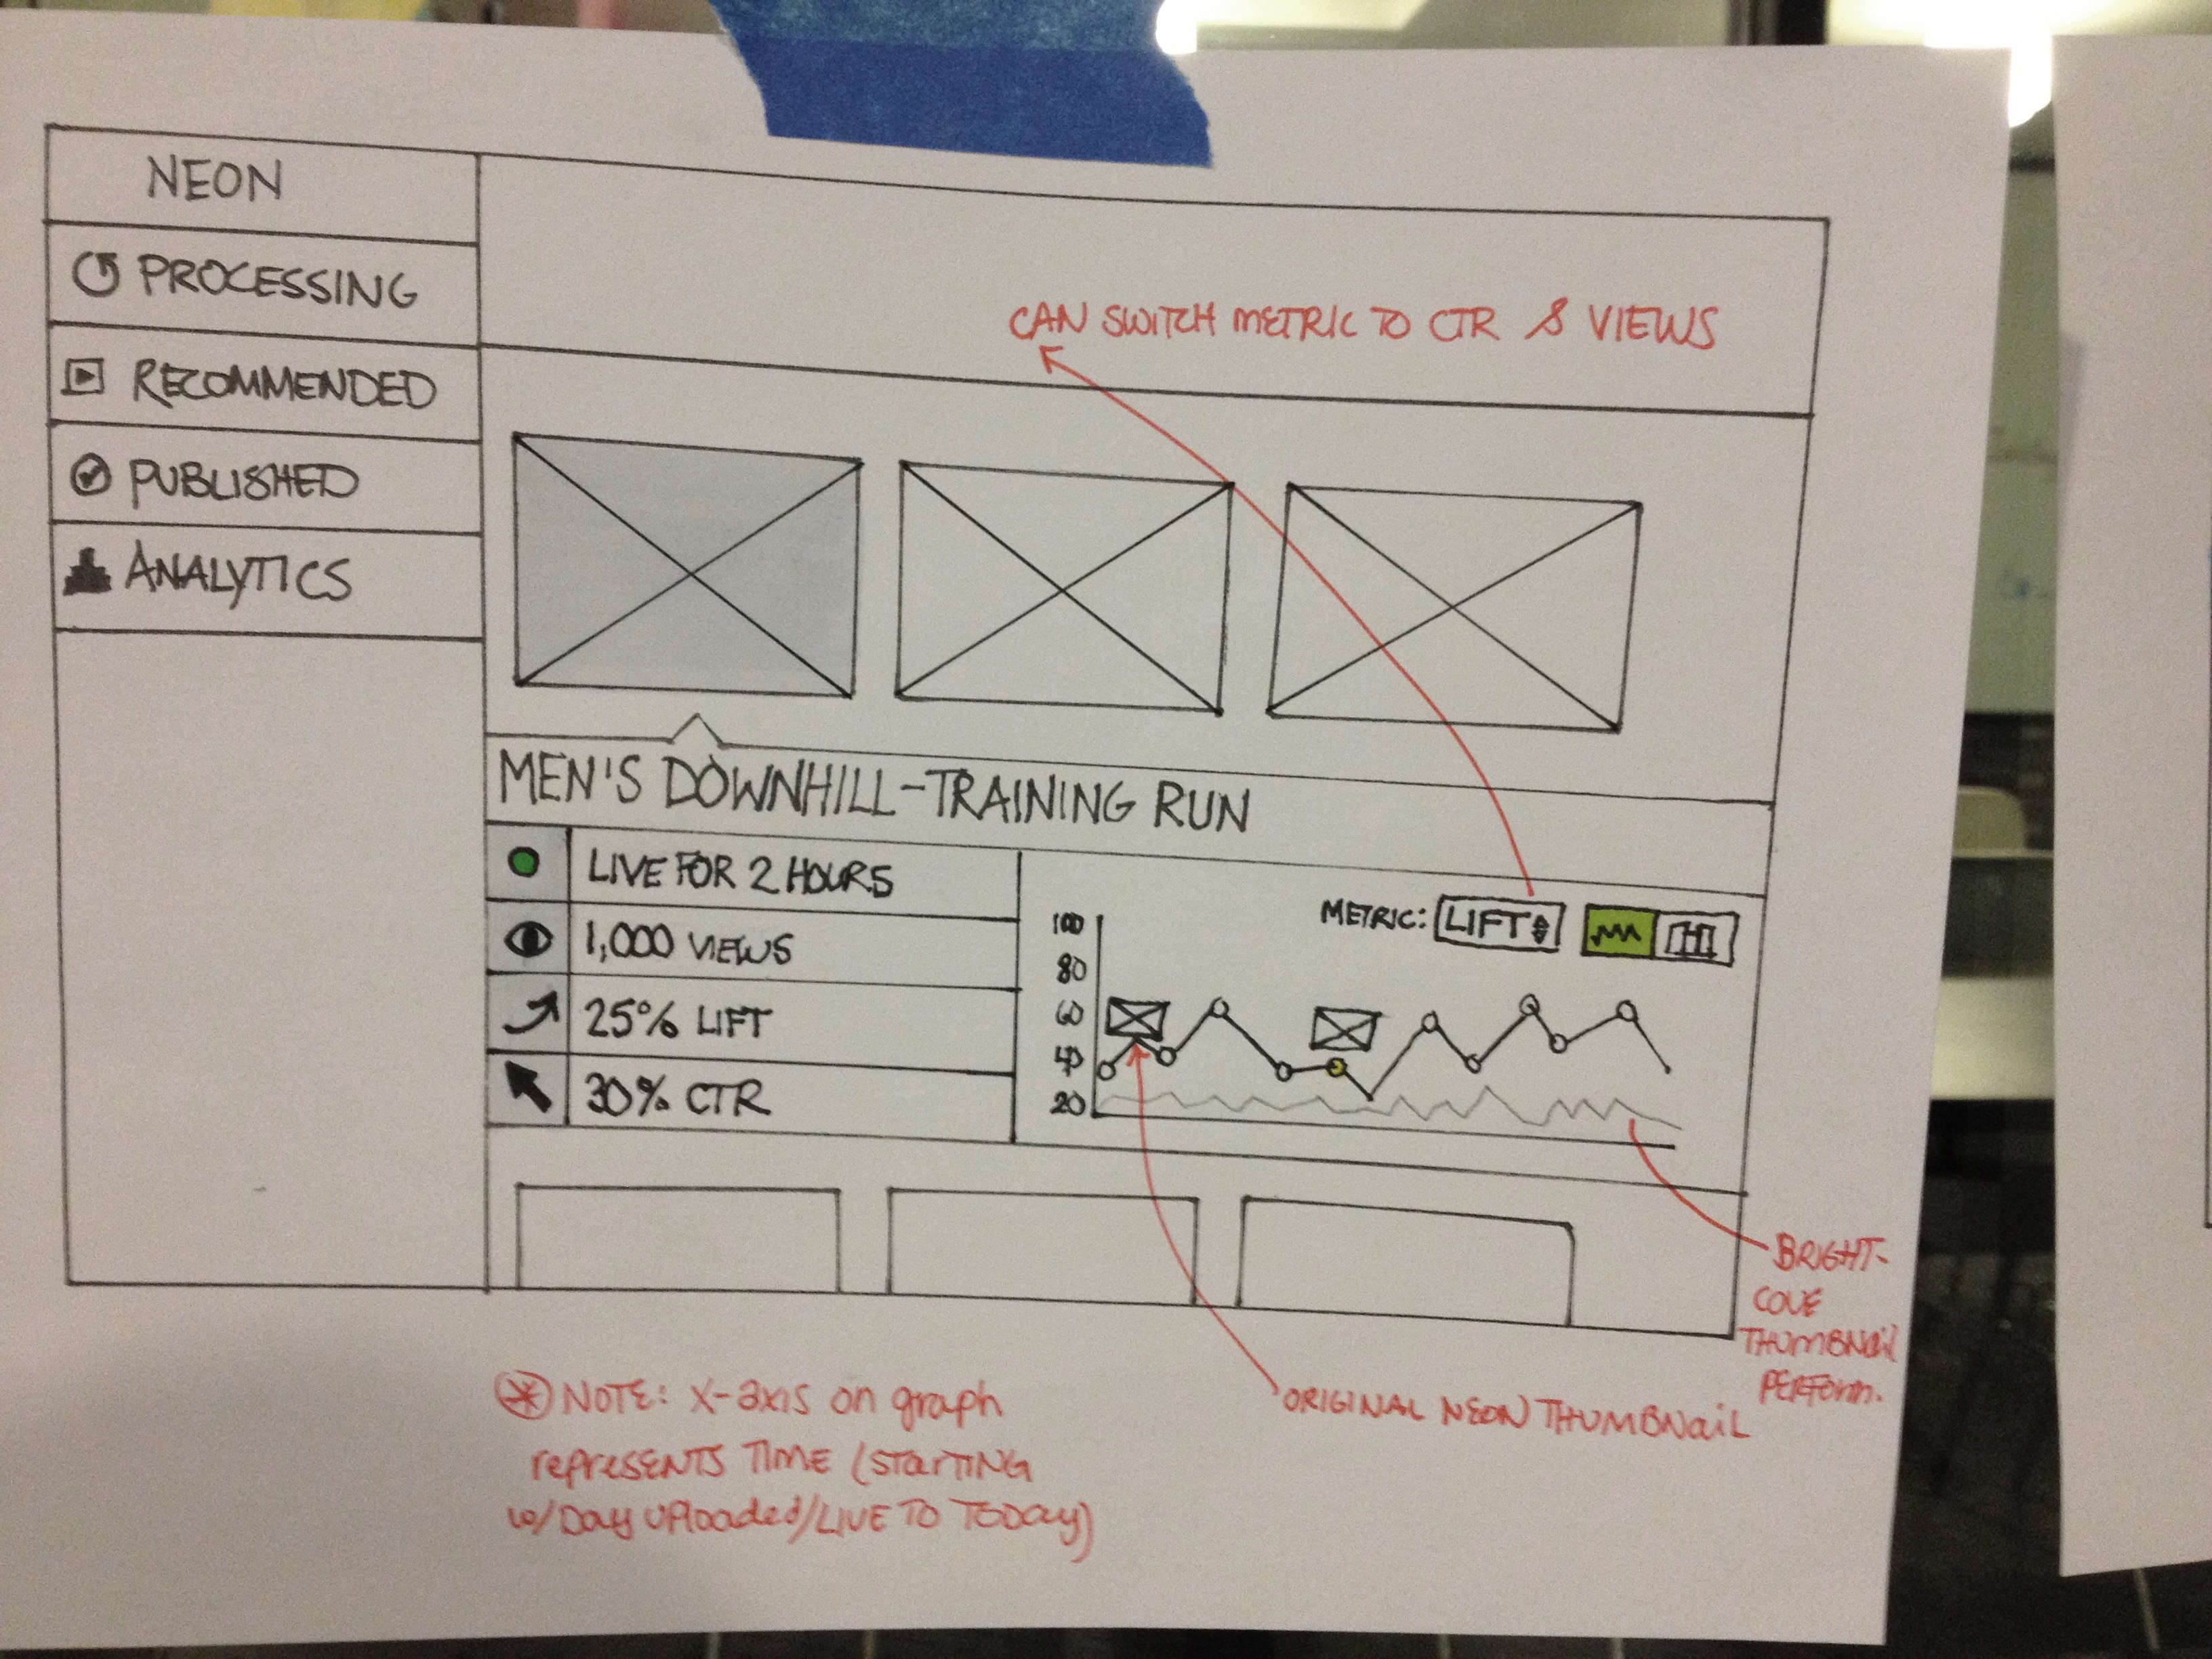 NEON
PROCESSING
RECOMMENDED
PUBLISHED
ANALYTICS
CAN SWITCH METRIC TO CTR & VIEWS
MEN'S DOWNHILL-TRAINING RUN
LIVE FOR 2 HOURS
1,000 VIEWS
25% LIFT
30% CTR
METRIC: LIFT
100
80
60
40
20
BRIGHT-
COVE
THUMBNaiL
PERFORM.
ORIGINAL NEON THUMBNaiL
NOTE: X-axis on graph
represents TIME (starting
w/Day uploaded/LIVE TO TODay)